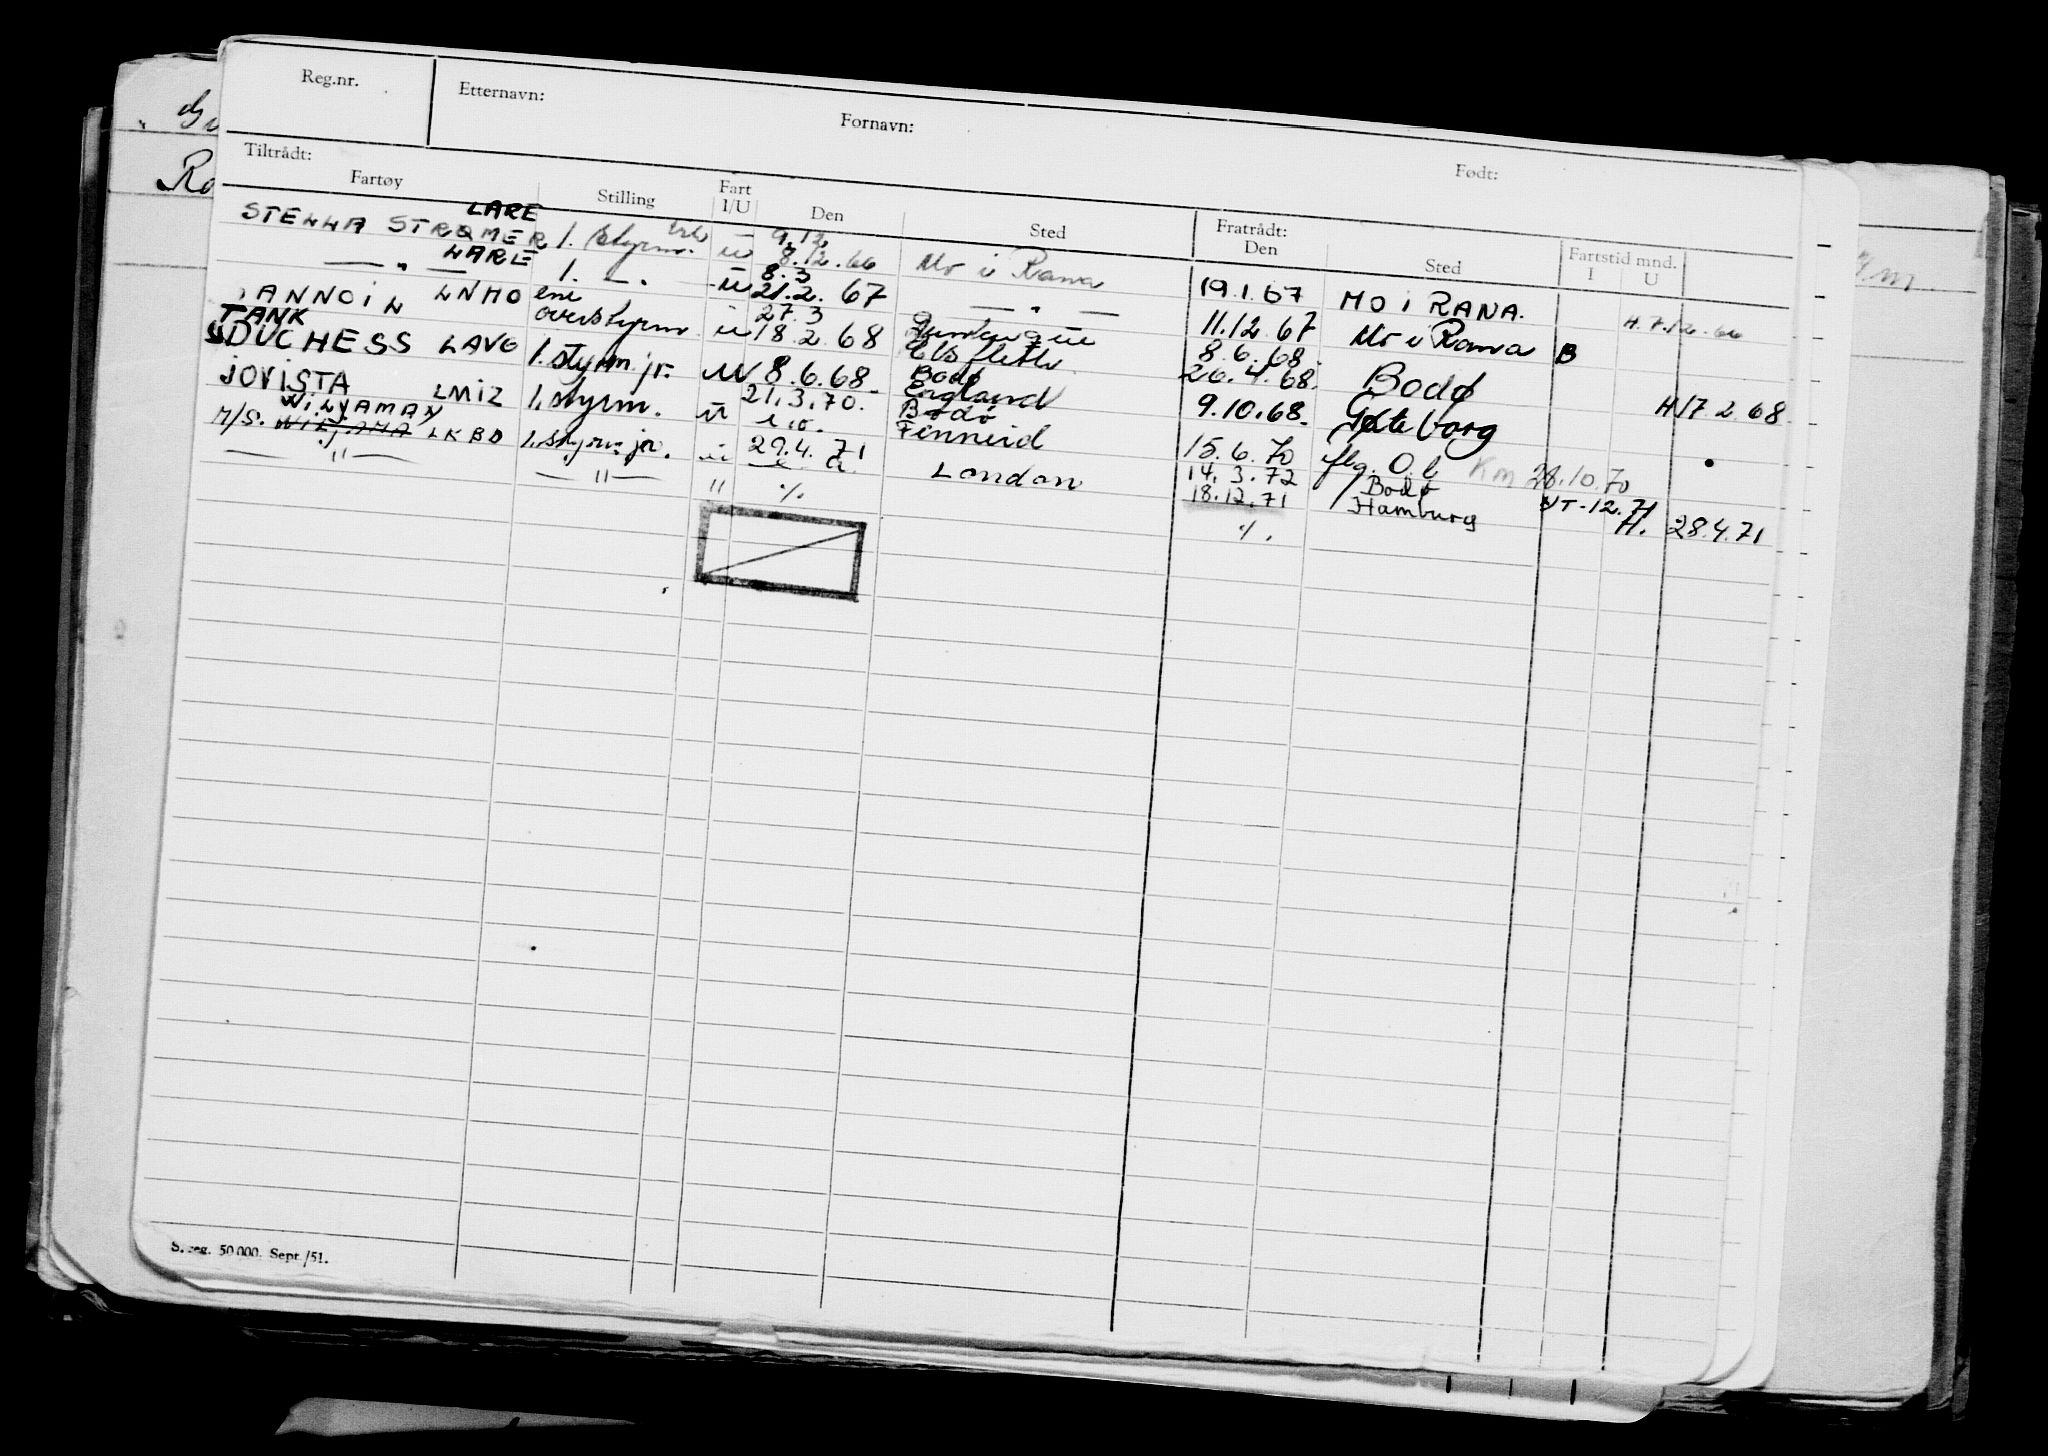 Reg.nr. Etternavn: Fornavn: Født:
Tiltrådt: Fratrådt:
Fartøy Stilling Fart I/U Den Sted Den Sted Fartstid mnd. I U
STELLA STRØMER LARE 1. styrm. u 9.12 8.12.66 Mo i Rana 19.1.67 MO I RANA. H. 7.12.66
— " — LARE 1. — " . u 8.3 21.2. 67 — " — 11.12.67 Mo i Rana B
JANNOIL LNMO ene overstyrm. u 27.3 18.2.68 8.6.68. Bodø H 17 2 68
TANK DUCHESS LAVG 1. styrm. jr. U 8.6.68 Bodø 26.4.68. Gøteborg
JOVISTA LMIZ 1. styrm. u 21.3.70. England 9.10.68.
M/S. WILJAMAX LKBD 1. styrm. jr. u 29.4.71 Bodø 15.6.70 flg. O.l Km 28.10.70
— " — — " — " ./. Finneid London 14.3.72 Bodø UT-12.71
18.12.71 Hamburg H. 28.4.71
./.
S. reg. 50.000. Sept./51.